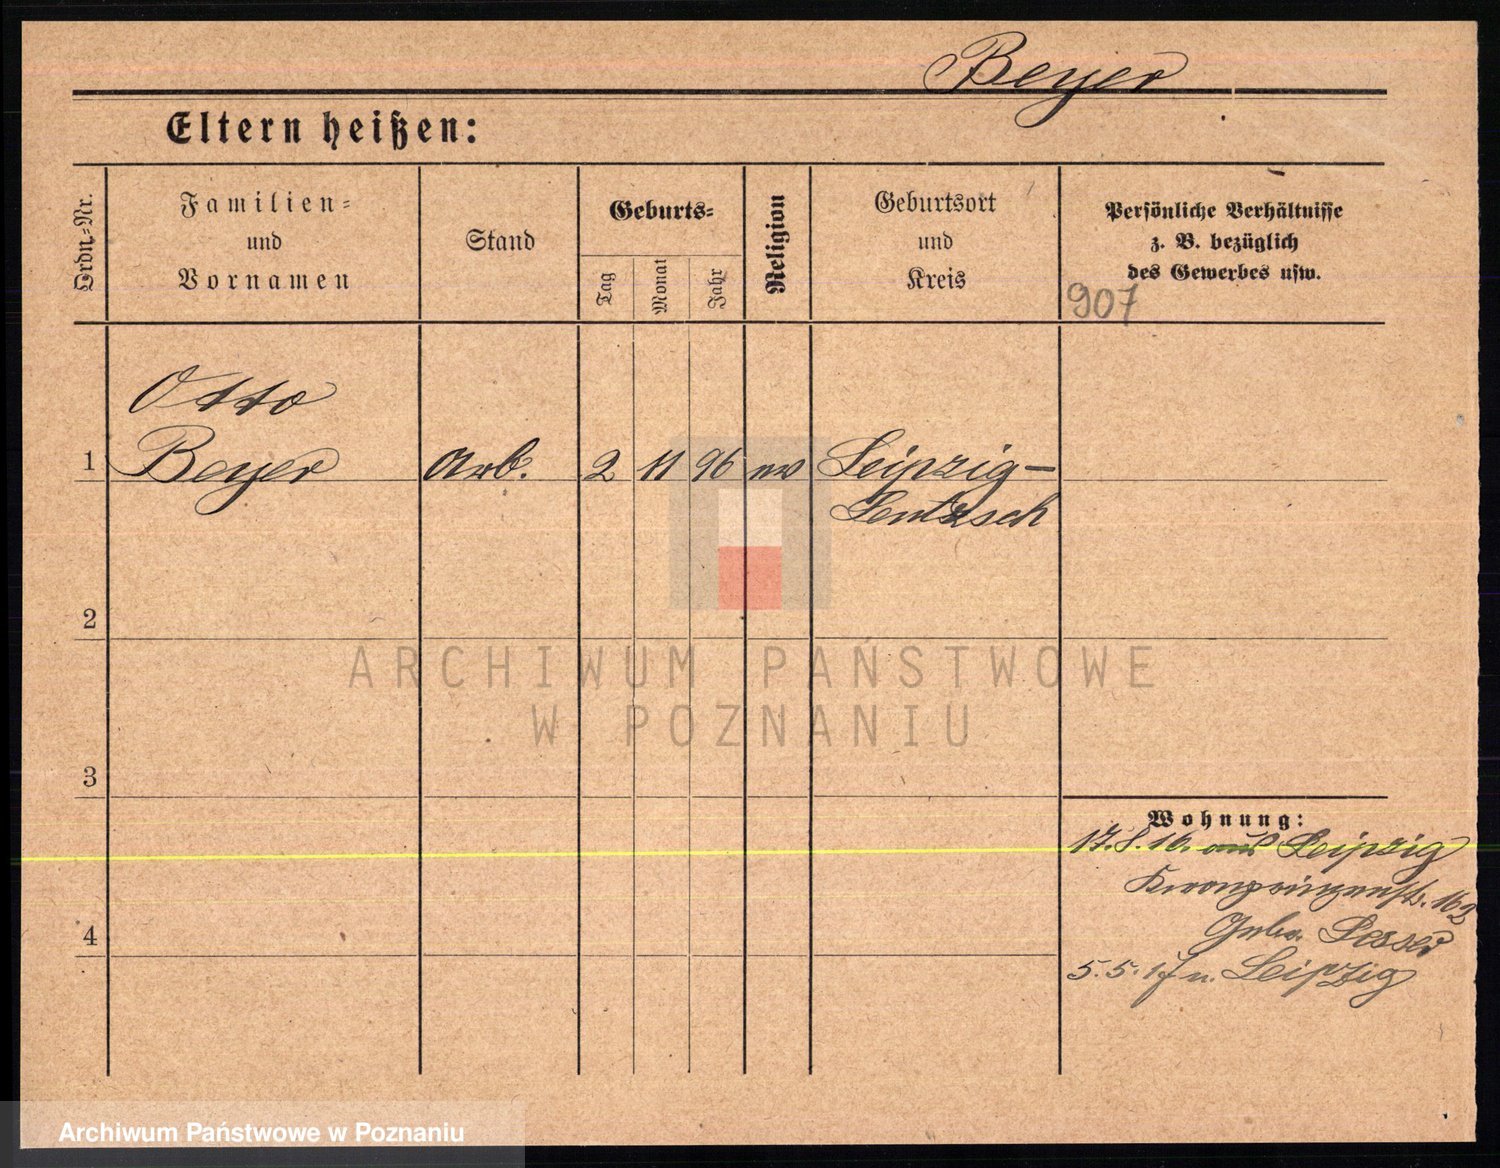 Beyer
Eltern heißen:
Ordn.-Nr.
Familien-
und
Vornamen
Stand
Geburts-
Tag
Monat
Jahr
Religion
Geburtsort
und
Kreis
Persönliche Verhältnisse
z. B. bezüglich
des Gewerbes usw.
907
Otto
1 Beyer Arb. 2 11 96 ev Leipzig-
Leutzsch
2
ARCHIWUM PAŃSTWOWE
W POZNANIU
3
Wohnung:
17. 8. 16. aus Leipzig
Kronprinzenstr. 162
Lesser
4
5. 5. 17 n. Leipzig
Archiwum Państwowe w Poznaniu